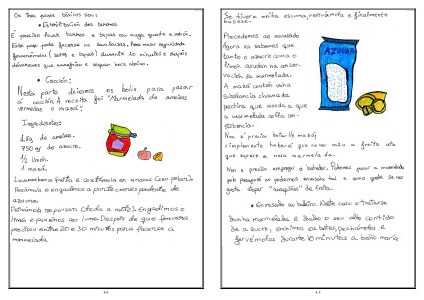 Os tres pasos básicos son:
• Esterilización dos tarros
É preciso lavar tarros e tapas con auga quente e xabón.
Este paso pode facerse no lavalouzas. Para maior seguridade
fervémolos (tarros e tapas) durante 10 minutos e despois
deixámolos que arrefríen e sequen boca abaixo.
• Cocción:
Nesta parte deixamos os botes para pasar
á cocción. A receita foi "Marmelada de ameixas
vermellas e mazá".
Ingredientes:
1 kg de ameixas.
750 gr de azucre.
½ limón.
1 mazá.
Lavamos ben a froita e cortámola en anacos (sen pelar).
Pesámola e engadimos a parte correspondente de
azucre.
Deixámola repousar (toda a noite). Engadimos o
limón e puxemos ao lume. Despois de que ferveu foi
preciso entre 20 e 30 minutos para facerse a
marmelada.
Se tivera moita escuma, retirámola e finalmente
batese.
Procedemos ao envasado
Agora xa sabemos que
tanto o azucre como o
limón axudan na conser-
vación da marmelada.
A mazá contén unha
substancia chamada
pectina que axuda a que
a marmelada colla con-
sistencia.
Non é preciso botarlle mazá
simplemente haberá que cocer máis a froita ata
que espese a nosa marmelada.
Non é preciso empregar a batedora. Podemos pasar a marmelada
polo pasapuré ou podemos envasala tal e como quede se nos
gusta atopar "anaquiños" de froita.
• Envasado ao baleiro. Neste caso o tratarse
dunha marmelada e dado o seu alto contido
de azucre, enchimos os botes, pechámolos e
fervémolos durante 10 minutos a baño maría
AZUCAR